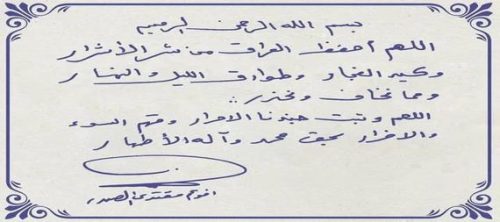 بسم الله الرحمن الرحيم
اللهم أحفظ العراق من شر الأشرار
وكيد الفجار وطوارق الليل والنهار
ومما نخاف ونحذر
اللهم وثبت جنودنا الاحرار وقهم السوء
والاضرار بحق محمد وآله الأطهار
اخوكم مقتدى الصدر